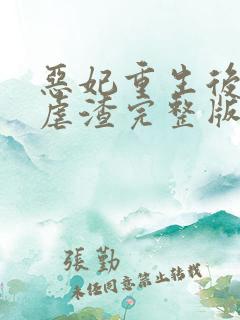 惡妃重生後
虐渣完整版
張勤
未任同意禁止转载